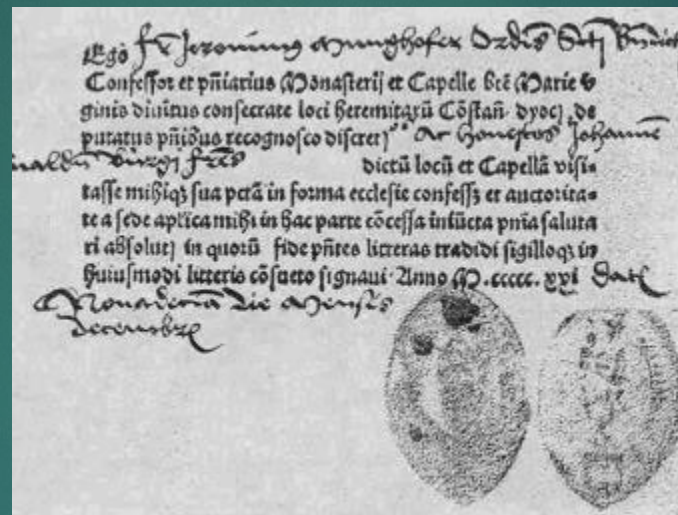 Ego fr Jeronimus Munghofer Ordis Scti
Confessor et pn̄iarius Monasterij et Capelle btē Marie v
ginis diuinitus consecrate loci heremitarū Cōstan̄. dyoc̄ de
putatus pn̄ibus recognosco discret ac honestos Johannē
Burgi frēs dictū locū et Capellā visi-
tasse mihiq̄ sua pctā in forma ecclesie confess̄ et auctorita-
te a sede aplica mihi in hac parte cōcessa iniūcta pn̄ia saluta
ri absolut in quorū fide pn̄tes litteras tradidi sigilloq̄ in
huiusmodi litteris cōsueto signaui. Anno M.ccccc.xxi dat
Nonadecīa die Mensis
decembr